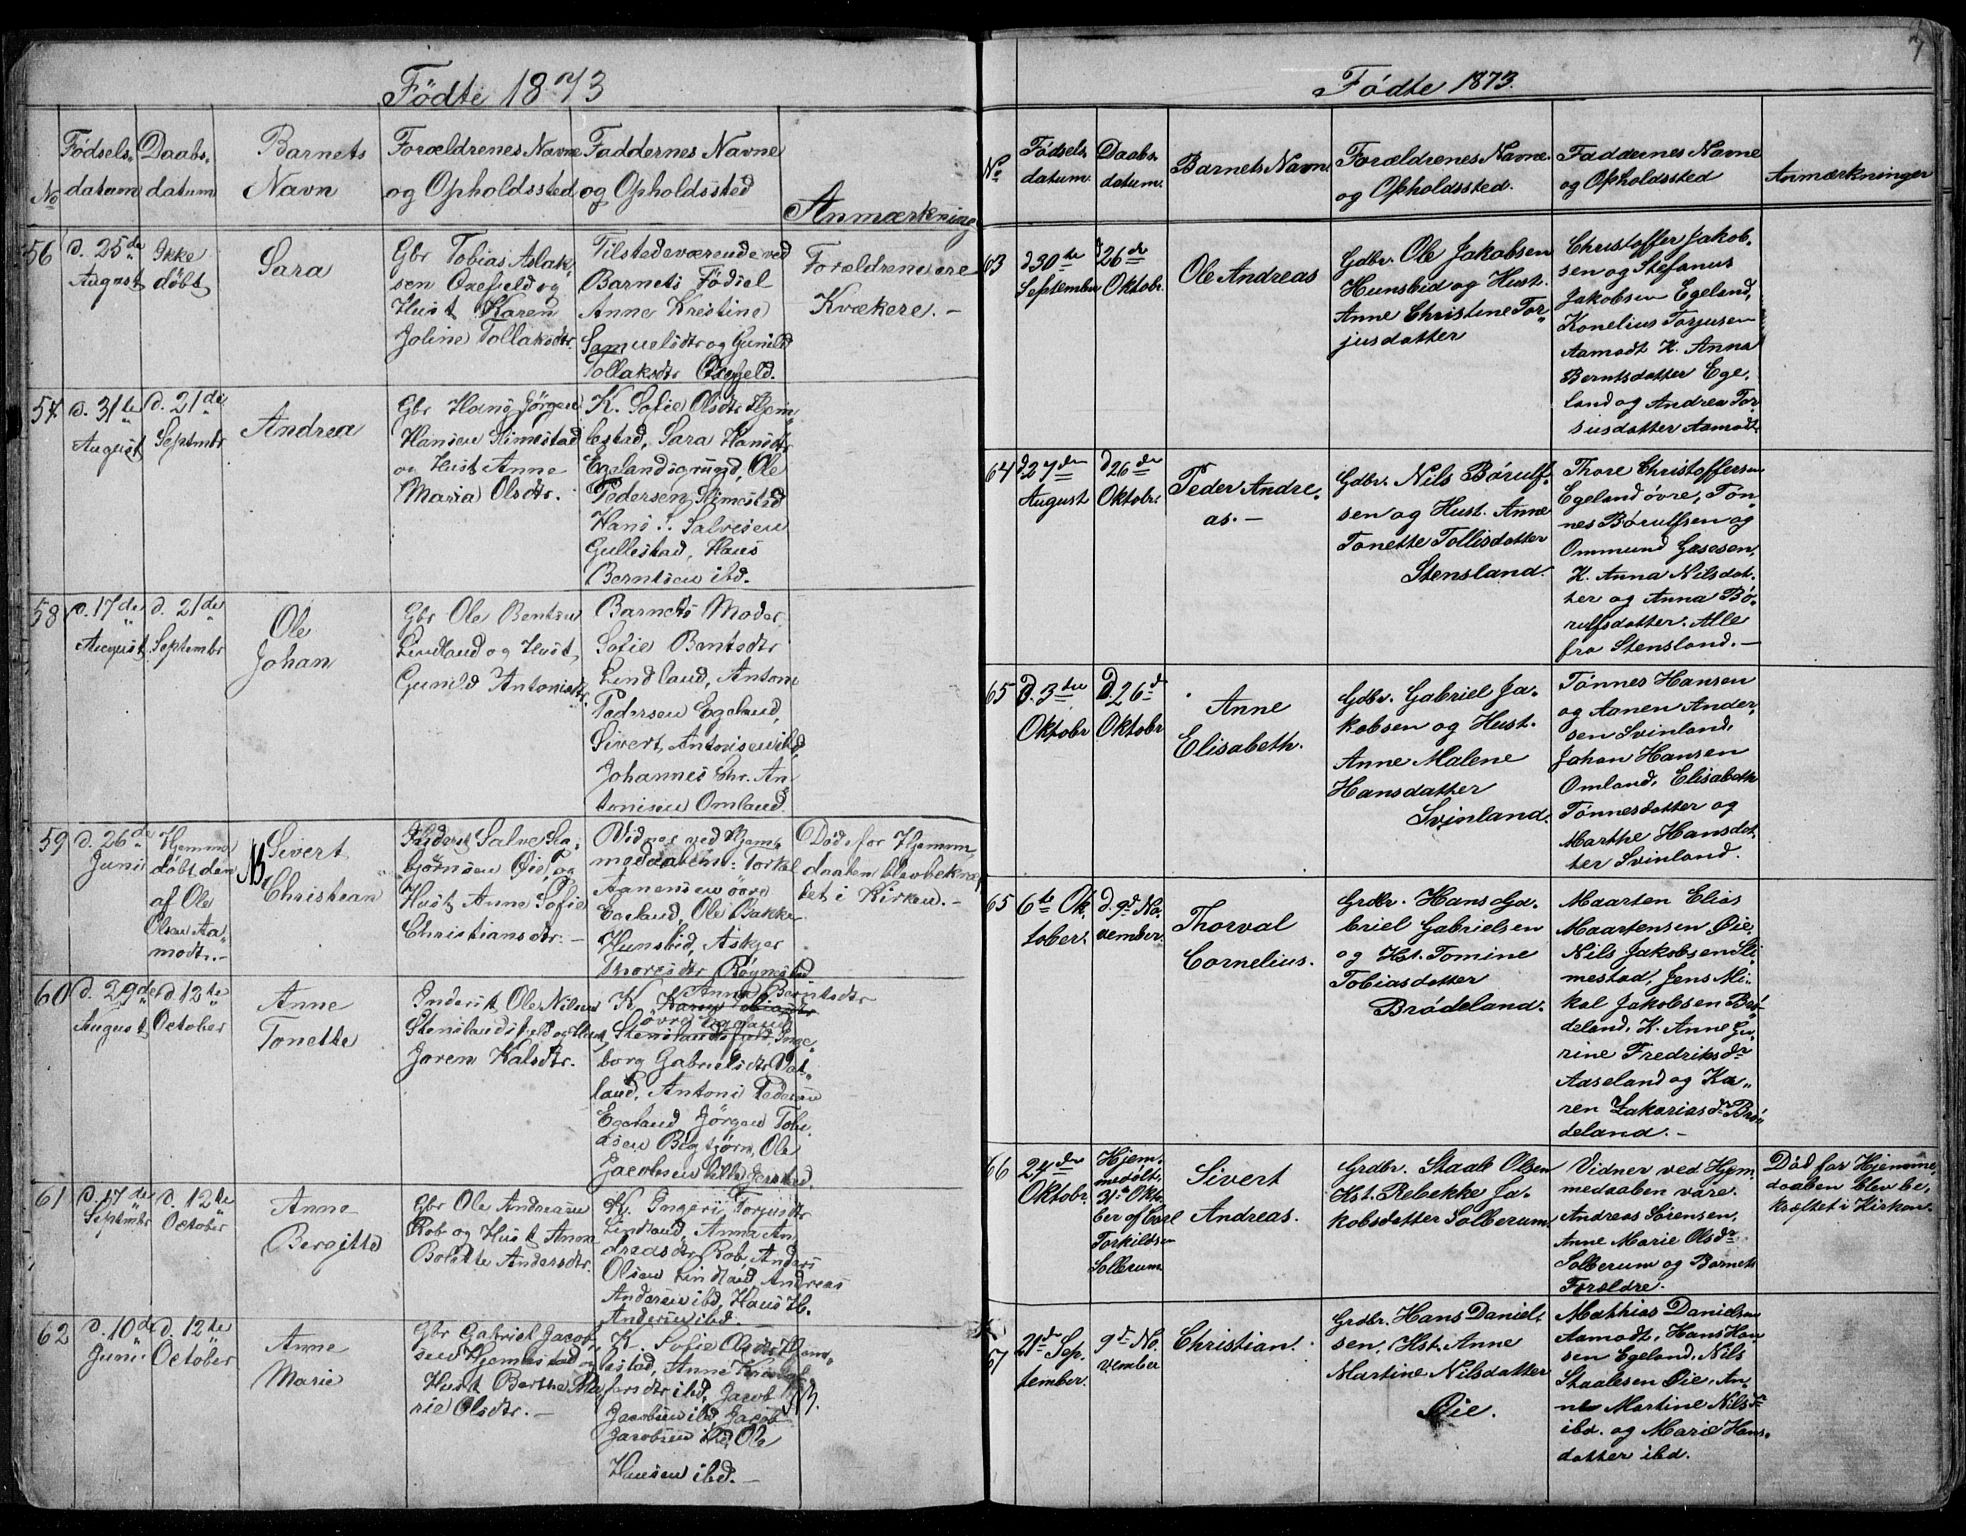 Födte 1873
No
Fødsels-
datum
Daabs-
datum
Barnets
Navn
Forældrenes Navne
og Opholdssted
Faddernes Navne
og Opholdssted
Anmærkning
56
d. 25de
August
Ikke
døbt
Sara
Gbr Tobias Aslak-
sen Oxefjeld og
Hust Karen
Joline Tollaksdtr.
Tilstedeværende ved
Barnets Födsel
Anne Kristine
Samuelsdtr og Gunild
Tollaksdtr Oxefjeld.
Forældrene ere
Kvækere. -
57
d. 31te
August
d. 21de
Septmbr
Andrea
Gbr Hans Jörgen
Hansen Slimestad
og Hust Anne
Maria Olsdtr.
K. Sofie Olsdtr Hjem-
lestad, Sara Hansdtr
Egelandsgrund, Ole
Pedersen Slimestad
Hans S. Salvesen
Gullestad, Hans
Berntsen ibd.
58
d. 17de
August
d. 21de
Septembr
Ole
Johan
Gbr Ole Bentsen
Lindland og Hust,
Gunild Antonisdtr.
Barnets Moder,
Sofie Bentsdtr
Lindland, Antoni
Pedersen Egeland,
Sivert Antonisen ibd,
Johannes Chr. An-
tonisen Omland.
59
d. 26de
Junii
Hjemme
døbt den
af Ole
Olsen Aa-
modt. -
NB
Sivert
Christian
Inderst Salve Sa-
björnsen Öie, og
Hust Anne Sofie
Christiansdtr. -
Vidner ved Hjem-
medaaben: Torkel
Aanensen övre
Egeland, Ole Bakke
Hunsbid, Askjer
Thoresdtr Röymstad
Död før Hjemme-
daaben blev bekræf-
tet i Kirken. -
60
d. 29de
August
d. 12te
October
Anne
Tonette
Inderst Ole Nilsen
Stenslandsfjeld og Hust,
Joren Kalsdtr.
Anna Berntsdtr
K. Karen Tobiasdtr
övre Egeland
Stenslandsfjeld, Inge-
borg Gabrielsdtr Vat-
land, Antoni Pedersen
Egeland, Jörgen Tobi-
asen Bigtjörn, Ole
Jacobsen lille Jerstad.
61
d. 17de
Septmbr
d. 12te
October
Anne
Bergitte
Gbr Ole Andreasen
Rob og Hust Anne
Bolette Andersdtr.
K. Ingeri Torjusdtr
Lindland, Anna An-
dreasdtr Rob, Anders
Olsen Lindland, Andreas
Andersen ibd, Hans H.
Andersen ibd.
62
d. 10de
Junii
d. 12te
October
Anne
Marie
Gbr Gabriel Jacob-
sen Hjemestad og
Hust Berthe Ma-
rie Olsdtr. -
K. Sofie Olsdtr Hjem-
lestad, Anne
ibd, Jacob
Jacobsen ibd, Jacob
Jacobsen ibd, Ole
Hansen ibd. -
NB.
7
Fødte 1873.
No
Fødsels-
datum.
Daabs-
datum.
Barnets Navn
Forældrenes Navne
og Opholdssted.
Faddernes Navne
og Opholdssted
Anmærkninger
63
d 30te
September
d 26de
Oktobr.
Ole Andreas
Gdbr. Ole Jakobsen
Hunsbid og Hust.
Anne Christine Tor-
jusdatter
Christoffer Jakob-
sen og Stefanus
Jakobsen Egeland,
Konelius Torjusen
Aamodt K. Anna
Berntsdatter Ege-
land og Andrea Tor-
jusdatter Aamodt.
64
d 27de
August
d 26de
Oktobr.
Peder Andre-
as. -
Gdbr. Nils Børulf-
sen og Hust. Anne
Tonette Tollisdatter
Stensland.
Thore Christoffersen
Egeland øvre, Tøn-
nes Børulfsen og
Ommund Gasesen,
K. Anna Nilsdat-
ter og Anna Bø-
rulfsdatter. Alle
fra Stensland. -
65
d. 3die
Oktobr
d. 26d
Oktobr
Anne
Elisabeth.
Gdbr. Gabriel Ja-
kobsen og Hust.
Anne Malene
Hansdatter
Svinland.
Tönnes Hansen
og Aanen Ander-
sen Svinland,
Johan Hansen
Omland, Elisabeth
Tønnesdatter og
Marthe Hansdat-
ter Svinland.
65
6te Ok-
tober.
d. 9d No-
vember.
Thorval
Cornelius.
Grdbr. Hans Ga-
briel Gabrielsen
og Hst. Tomine
Tobiasdatter
Brødeland.
Maarten Elias
Maartensen Øie,
Nils Jakobsen Sli-
mestad, Jens Mi-
kal Jakobsen Brö-
deland, K. Anne Gu-
rine Fredriksdr
Aaseland og Ka-
ren Zakariasdr Brö-
deland. -
66
24de
Oktobr.
Hjem-
medøbt
31te Okto-
ber af Carl
Torkildsen
Solberum
Sivert
Andreas.
Grdbr. Staale Olsen
Hst. Rebekke Ja-
kobsdatter Solberum
Vidner ved Hjem-
medaaben vare.
Andreas Sørensen,
Anne Marie Olsdr
Solberum og Barnets
Forældre.
Død før Hjemme-
daaben blev be-
kræftet i Kirken.
67
21de Sep-
tember.
9d No-
vember
Christian.
Grdbr. Hans Daniel-
sen, Hst. Anne
Martine Nilsdatter
Øie.
Mathias Danielsen
Aamodt, Hans Han-
sen Egeland, Nils
Staalesen Øie, An-
ne Martine Nilsdr
ibd. og Marie Hans-
datter ibd.